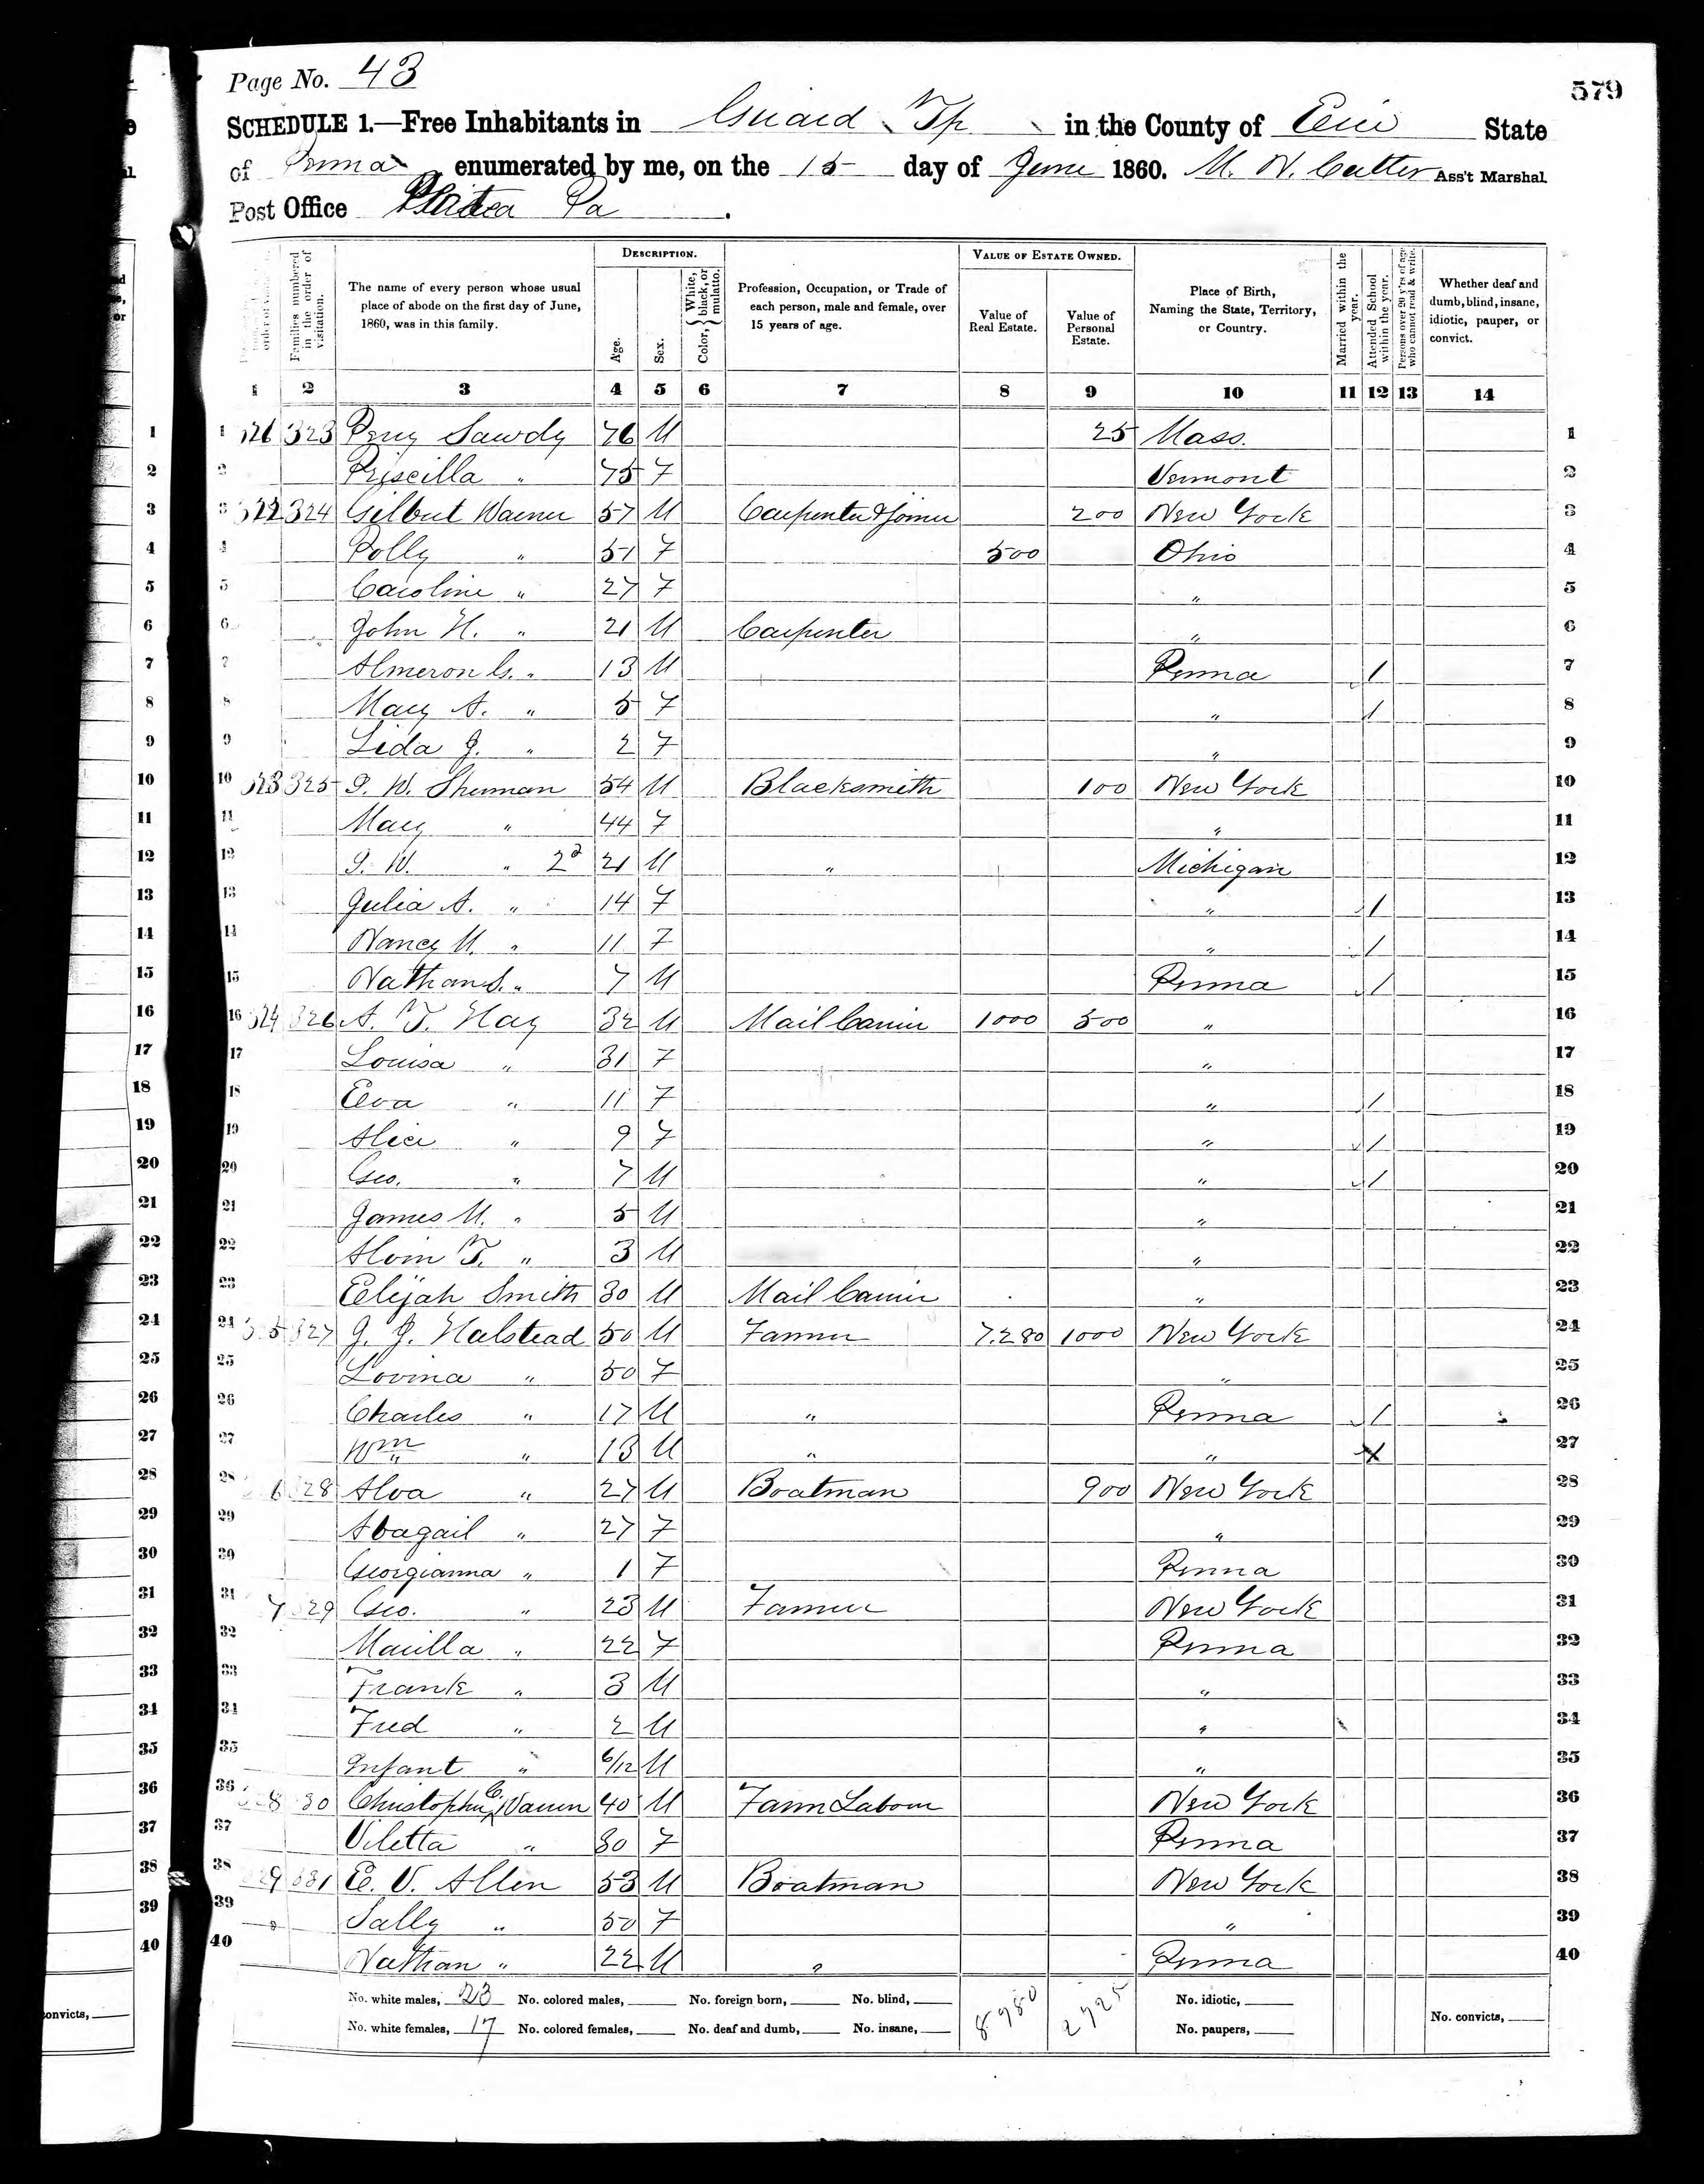 Page No. 43
579
SCHEDULE 1.—Free Inhabitants in Girard Tp in the County of Erie State
of Penna enumerated by me, on the 15 day of June 1860. M. N. Cutler Ass't Marshal
Post Office Platea Pa.
DESCRIPTION. VALUE OF ESTATE OWNED.
Families numbered in the order of visitation. The name of every person whose usual place of abode on the first day of June, 1860, was in this family. Age. Sex. Color, { White, black, or mulatto. Profession, Occupation, or Trade of each person, male and female, over 15 years of age. Value of Real Estate. Value of Personal Estate. Place of Birth, Naming the State, Territory, or Country. Married within the year. Attended School within the year. Persons over 20 y'rs of age who cannot read & write. Whether deaf and dumb, blind, insane, idiotic, pauper, or convict.
1 2 3 4 5 6 7 8 9 10 11 12 13 14
1 323 Perry Sawdy 76 M 25 Mass. 1
2 Priscilla " 75 F Vermont 2
3 322 324 Gilbert Warner 57 M Carpenter & Joiner 200 New York 3
4 Polly " 51 F 500 Ohio 4
5 Caroline " 27 F " 5
6 John H. " 21 M Carpenter " 6
7 Almeron G. " 13 M Penna / 7
8 Mary A. " 5 F " / 8
9 Lida J. " 2 F " 9
10 323 325 G. W. Sherman 54 M Blacksmith 100 New York 10
11 Mary " 44 F " 11
12 G. W. " 2d 21 M " Michigan 12
13 Julia A. " 14 F " / 13
14 Nancy M. " 11 F " / 14
15 Nathan S. " 7 M Penna / 15
16 324 326 A. T. Hay 32 M Mail Carrier 1000 500 " 16
17 Louisa " 31 F " 17
18 Eva " 11 F " / 18
19 Alice " 9 F " / 19
20 Geo. " 7 M " / 20
21 James M. " 5 M " 21
22 Alvin T. " 3 M " 22
23 Elijah Smith 30 M Mail Carrier " 23
24 327 J. J. Halstead 50 M Farmer 7.280 1000 New York 24
25 Lovina " 50 F " 25
26 Charles " 17 M " Penna / 26
27 Wm " 13 M " " X 27
28 328 Alva " 27 M Boatman 900 New York 28
29 Abagail " 27 F " 29
30 Georgianna " 1 F Penna 30
31 329 Geo. " 23 M Farmer New York 31
32 Marilla " 22 F Penna 32
33 Frank " 3 M " 33
34 Fred " 2 M " 34
35 Infant " 6/12 M " 35
36 Christopher C. Warren 40 M Farm Labour New York 36
37 Viletta " 30 F Penna 37
38 331 E. V. Allen 53 M Boatman New York 38
39 Sally " 50 F " 39
40 Nathan " 22 M " Penna 40
No. white males, 23 No. colored males, No. foreign born, No. blind, 8780 2725 No. idiotic, No. convicts,
No. white females, 17 No. colored females, No. deaf and dumb, No. insane, No. paupers,